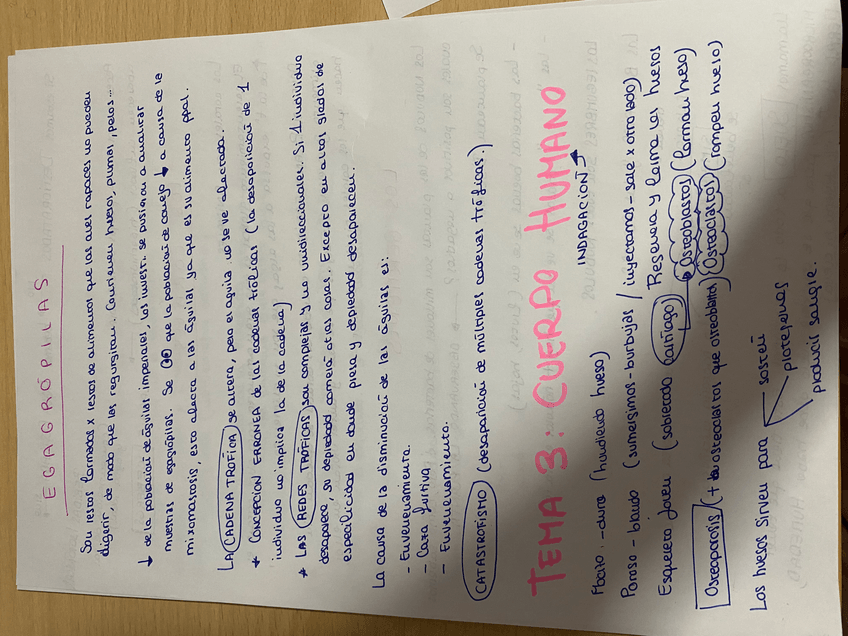 EGAGRÓPILAS
Son restos formados x restos de alimentos que las aves rapaces no pueden
digerir, de modo que las regurgitan. Contienen huesos, plumas, pelos...
↓ de la población de águilas imperiales, los investi. se pusieron a analizar
muestras de egagrópilas. Se que la población de conejo ↓ a causa de la
mixomatosis, esto afecta a las águilas ya que es su alimento ppal.
LA CADENA TRÓFICA se altera, pero el águila no se ve afectada.
* CONCEPCIÓN ERRONEA de las cadenas tróficas (la desaparición de 1
individuo no implica la de la cadena)
* LAS REDES TRÓFICAS son complejas y no unidireccionales. Si 1 individuo
desaparece, su depredador comerá otras cosas. Excepto en altos grados de
especificidad en donde presa y depredador desaparecen.
La causa de la disminución de las águilas es:
- Envenenamiento.
- Caza furtiva
- Envenenamiento.
CATASTROFISMO (desaparición de múltiples cadenas tróficas.)
TEMA 3: CUERPO HUMANO
INDAGACIÓN
- duro (hundiendo hueso)
Poroso - blando (sumergimos - burbujas / inyectamos - sale x otro lado)
Esqueleto joven (sobretodo cartílago) → Osteoblastos (forman hueso)
Regenera y forma los huesos
Osteoclastos (rompen hueso)
Osteoporosis (+ osteoclastos que osteoblastos)
Los huesos sirven para
sostén
protegernos
producir sangre.